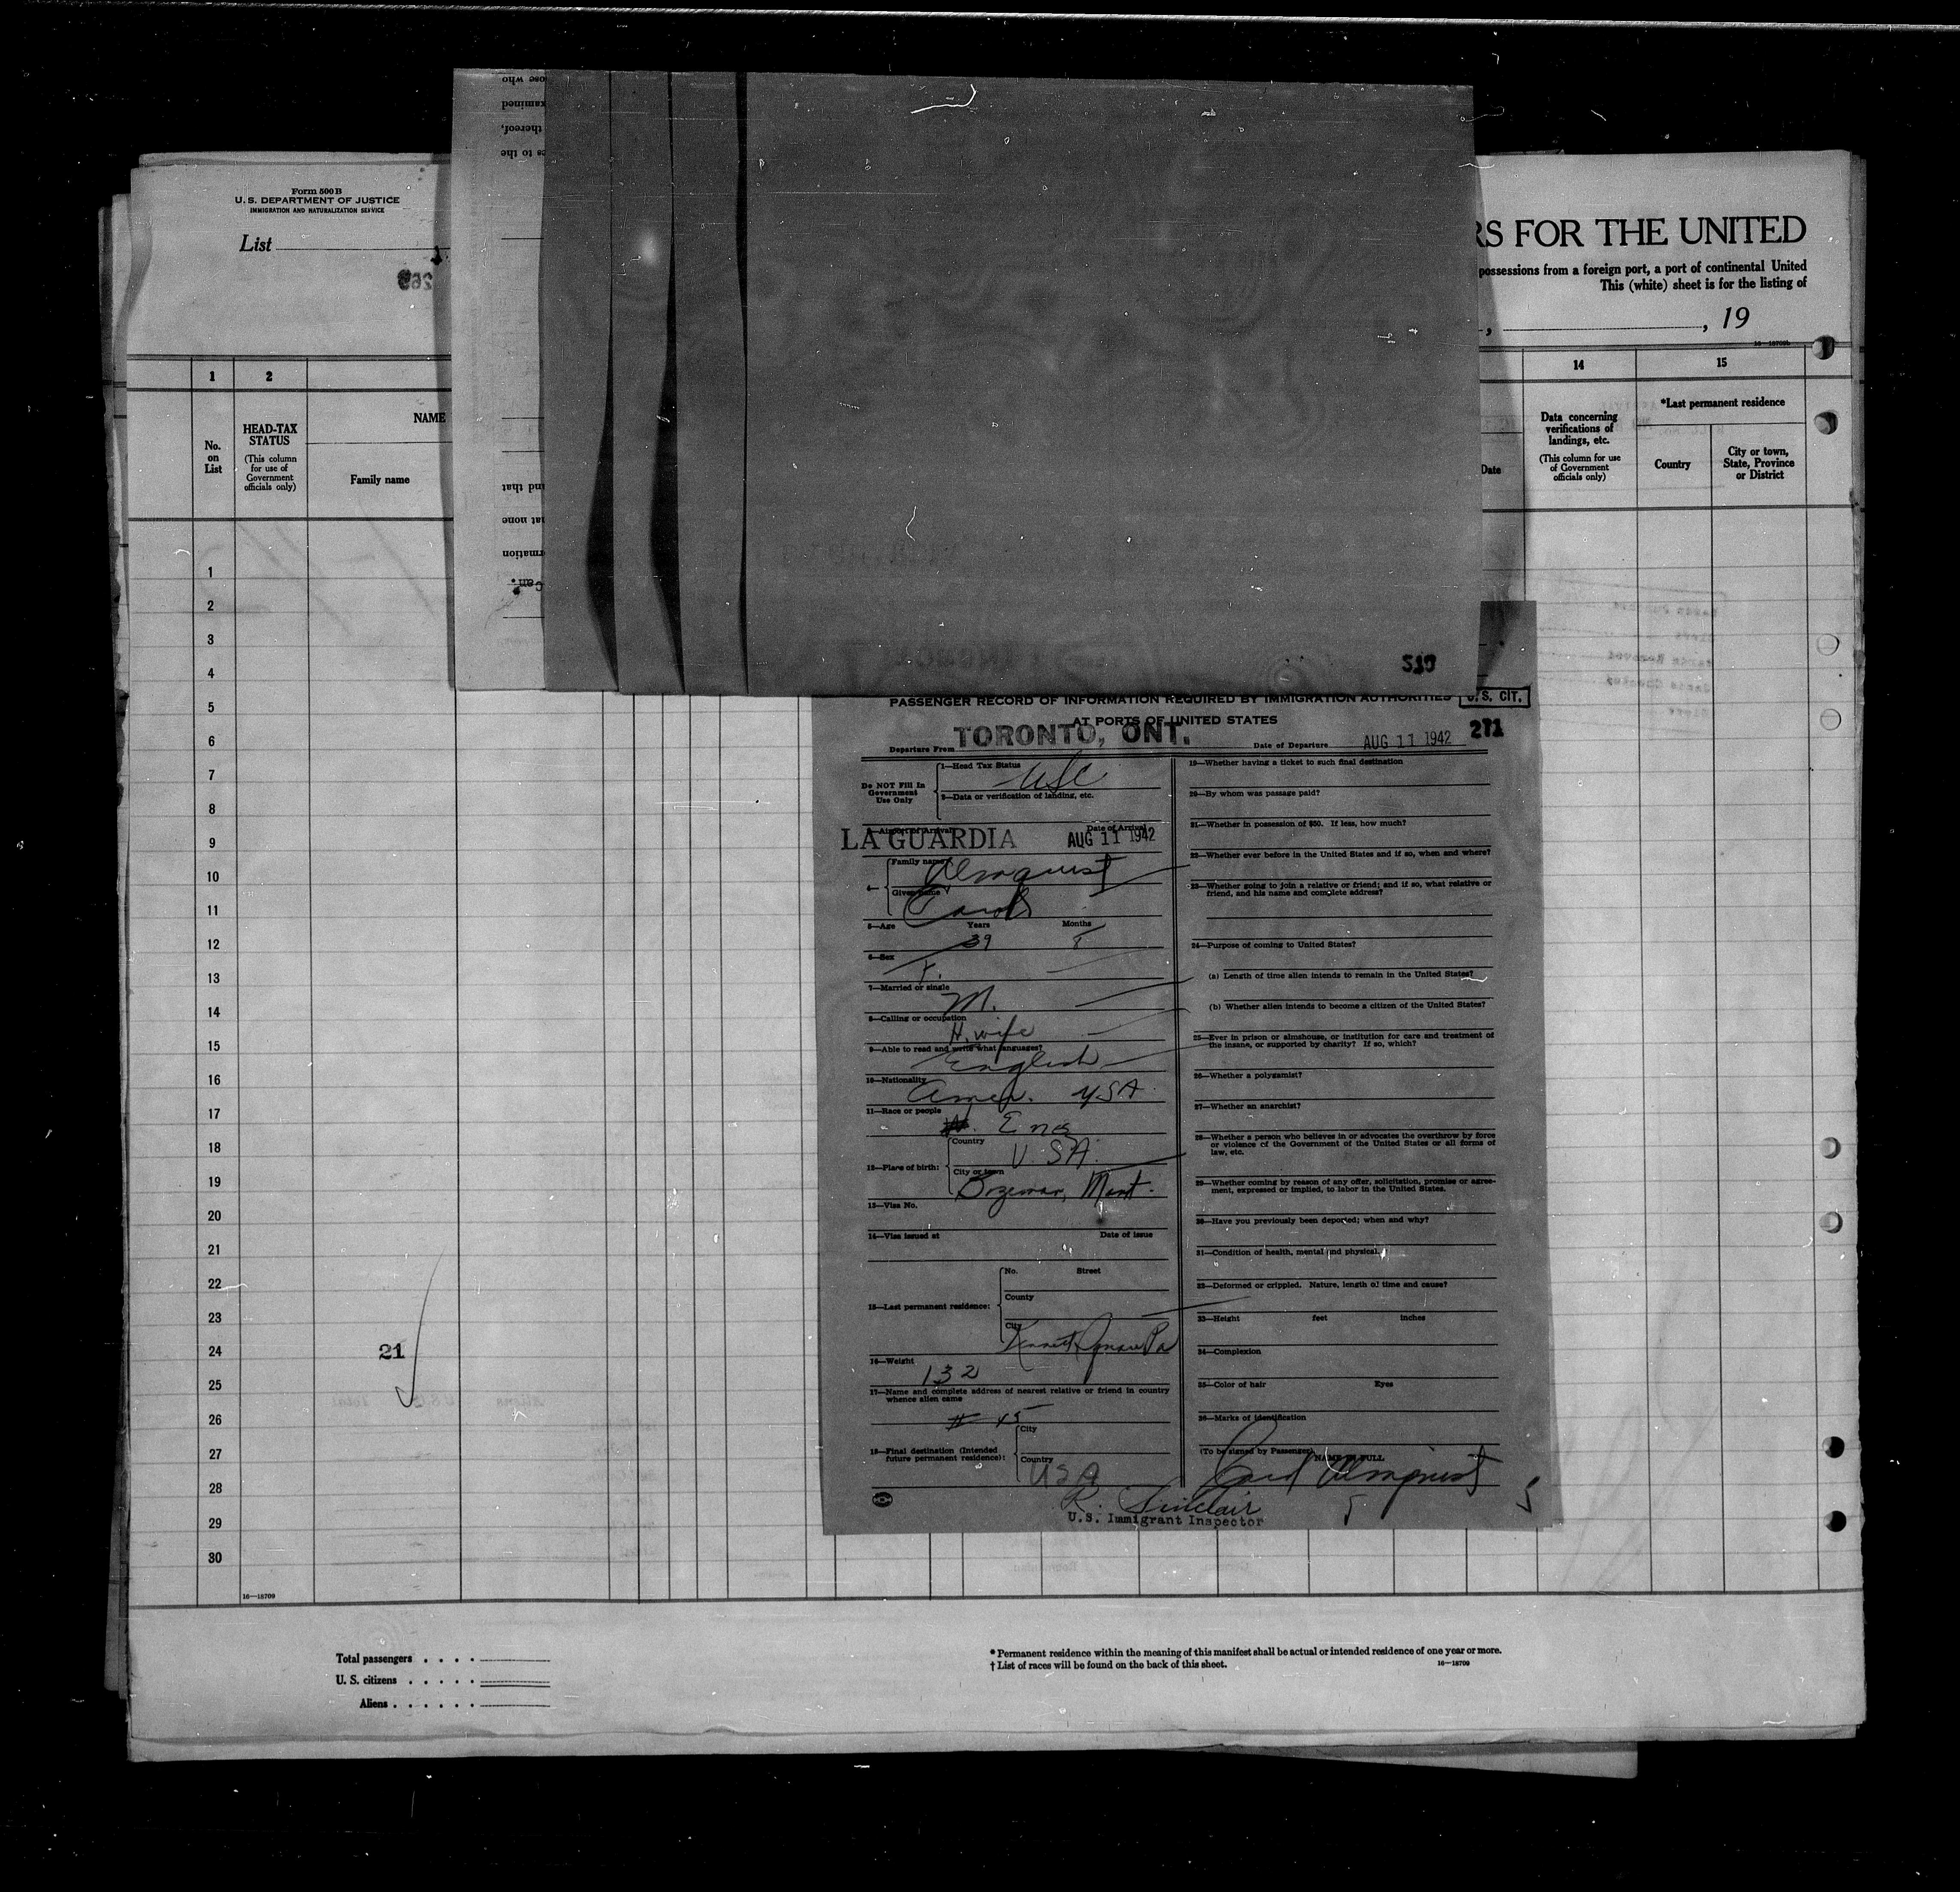 Form 500 B
U. S. DEPARTMENT OF JUSTICE
IMMIGRATION AND NATURALIZATION SERVICE
List
RS FOR THE UNITED
possessions from a foreign port, a port of continental United
This (white) sheet is for the listing of
, 19
16—18709b
1 2 14 15
No. on List
HEAD-TAX STATUS
(This column for use of Government officials only)
NAME
Family name
Date
Data concerning verifications of landings, etc.
(This column for use of Government officials only)
*Last permanent residence
Country
City or town, State, Province or District
ose who
xamined
thereof,
es to the
nd that
at none
rmation
Can.
1
2
3
4
5
6
7
8
9
10
11
12
13
14
15
16
17
18
19
20
21
22
23
24
21
25
26
27
28
29
30
16—18709
PASSENGER RECORD OF INFORMATION REQUIRED BY IMMIGRATION AUTHORITIES
U. S. CIT.
AT PORTS OF UNITED STATES
271
Departure From TORONTO, ONT. Date of Departure AUG 11 1942
Do NOT Fill In Government Use Only
1—Head Tax Status USC
2—Data or verification of landing, etc.
3—Airport of Arrival Date of Arrival
LA GUARDIA AUG 11 1942
4— Family name Almquist
Given name Carol
5—Age Years 39 Months 8
6—Sex F.
7—Married or single M.
8—Calling or occupation H. wife
9—Able to read and write what languages? English
10—Nationality Amer. USA
11—Race or people Eng
12—Place of birth: Country U. S A.
City or town Bozeman, Mont.
13—Visa No.
14—Visa issued at Date of issue
15—Last permanent residence: No. Street
County
City Kennett Square Pa
16—Weight 132
17—Name and complete address of nearest relative or friend in country
whence alien came
# 45
18—Final destination (Intended future permanent residence): City
Country USA
19—Whether having a ticket to such final destination
20—By whom was passage paid?
21—Whether in possession of $50. If less, how much?
22—Whether ever before in the United States and if so, when and where?
23—Whether going to join a relative or friend; and if so, what relative or
friend, and his name and complete address?
24—Purpose of coming to United States?
(a) Length of time alien intends to remain in the United States?
(b) Whether alien intends to become a citizen of the United States?
25—Ever in prison or almshouse, or institution for care and treatment of
the insane, or supported by charity? If so, which?
26—Whether a polygamist?
27—Whether an anarchist?
28—Whether a person who believes in or advocates the overthrow by force
or violence of the Government of the United States or all forms of
law, etc.
29—Whether coming by reason of any offer, solicitation, promise or agree-
ment, expressed or implied, to labor in the United States.
30—Have you previously been deported; when and why?
31—Condition of health, mental and physical.
32—Deformed or crippled. Nature, length of time and cause?
33—Height feet inches
34—Complexion
35—Color of hair Eyes
36—Marks of identification
(To be signed by Passenger) NAME IN FULL
Carol Almquist
R. Sinclair
U.S. Immigrant Inspector
Total passengers
U. S. citizens
Aliens
* Permanent residence within the meaning of this manifest shall be actual or intended residence of one year or more.
† List of races will be found on the back of this sheet.
16—18709